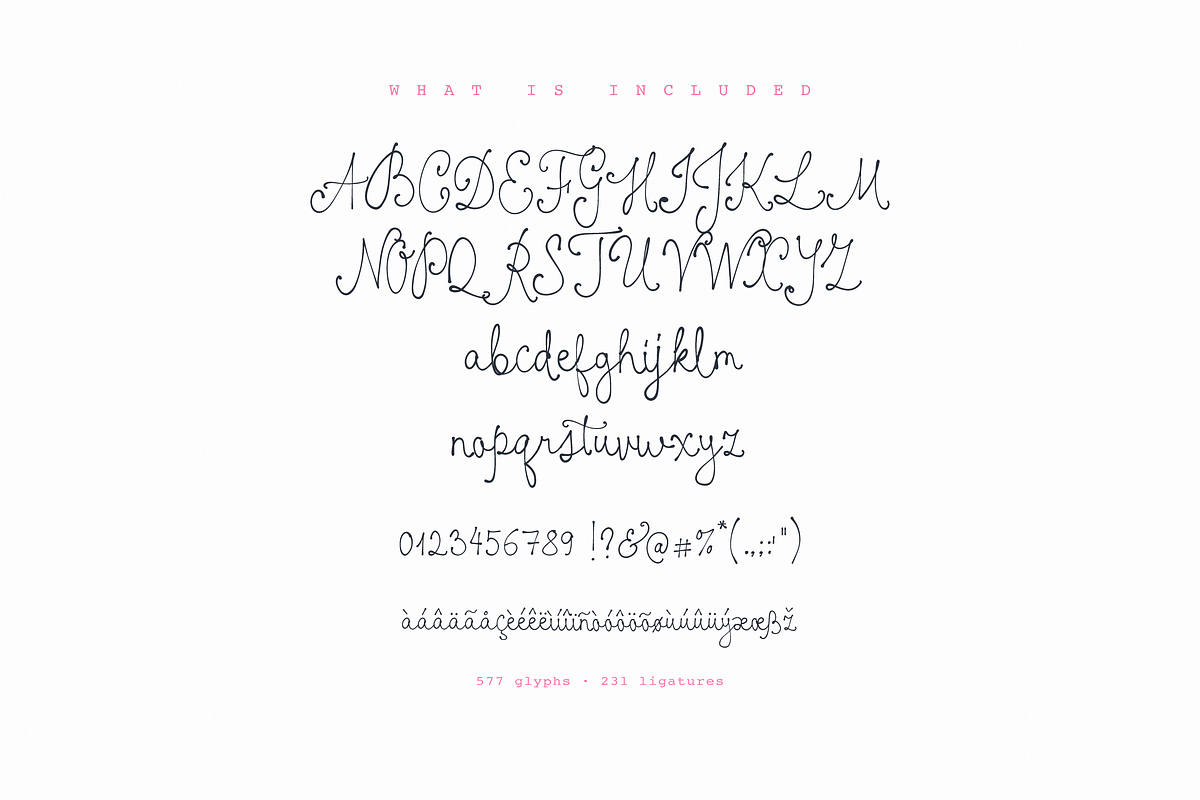 WHAT IS INCLUDED
ABCDEFGHIJKLM
NOPQRSTUVWXYZ
abcdefghijklm
nopqrstuvwxyz
0123456789 !?&@#%*(.,;:'")
àáâäãåçèéêëìíîïñòóôöõøùúûüýæœßž
577 glyphs · 231 ligatures